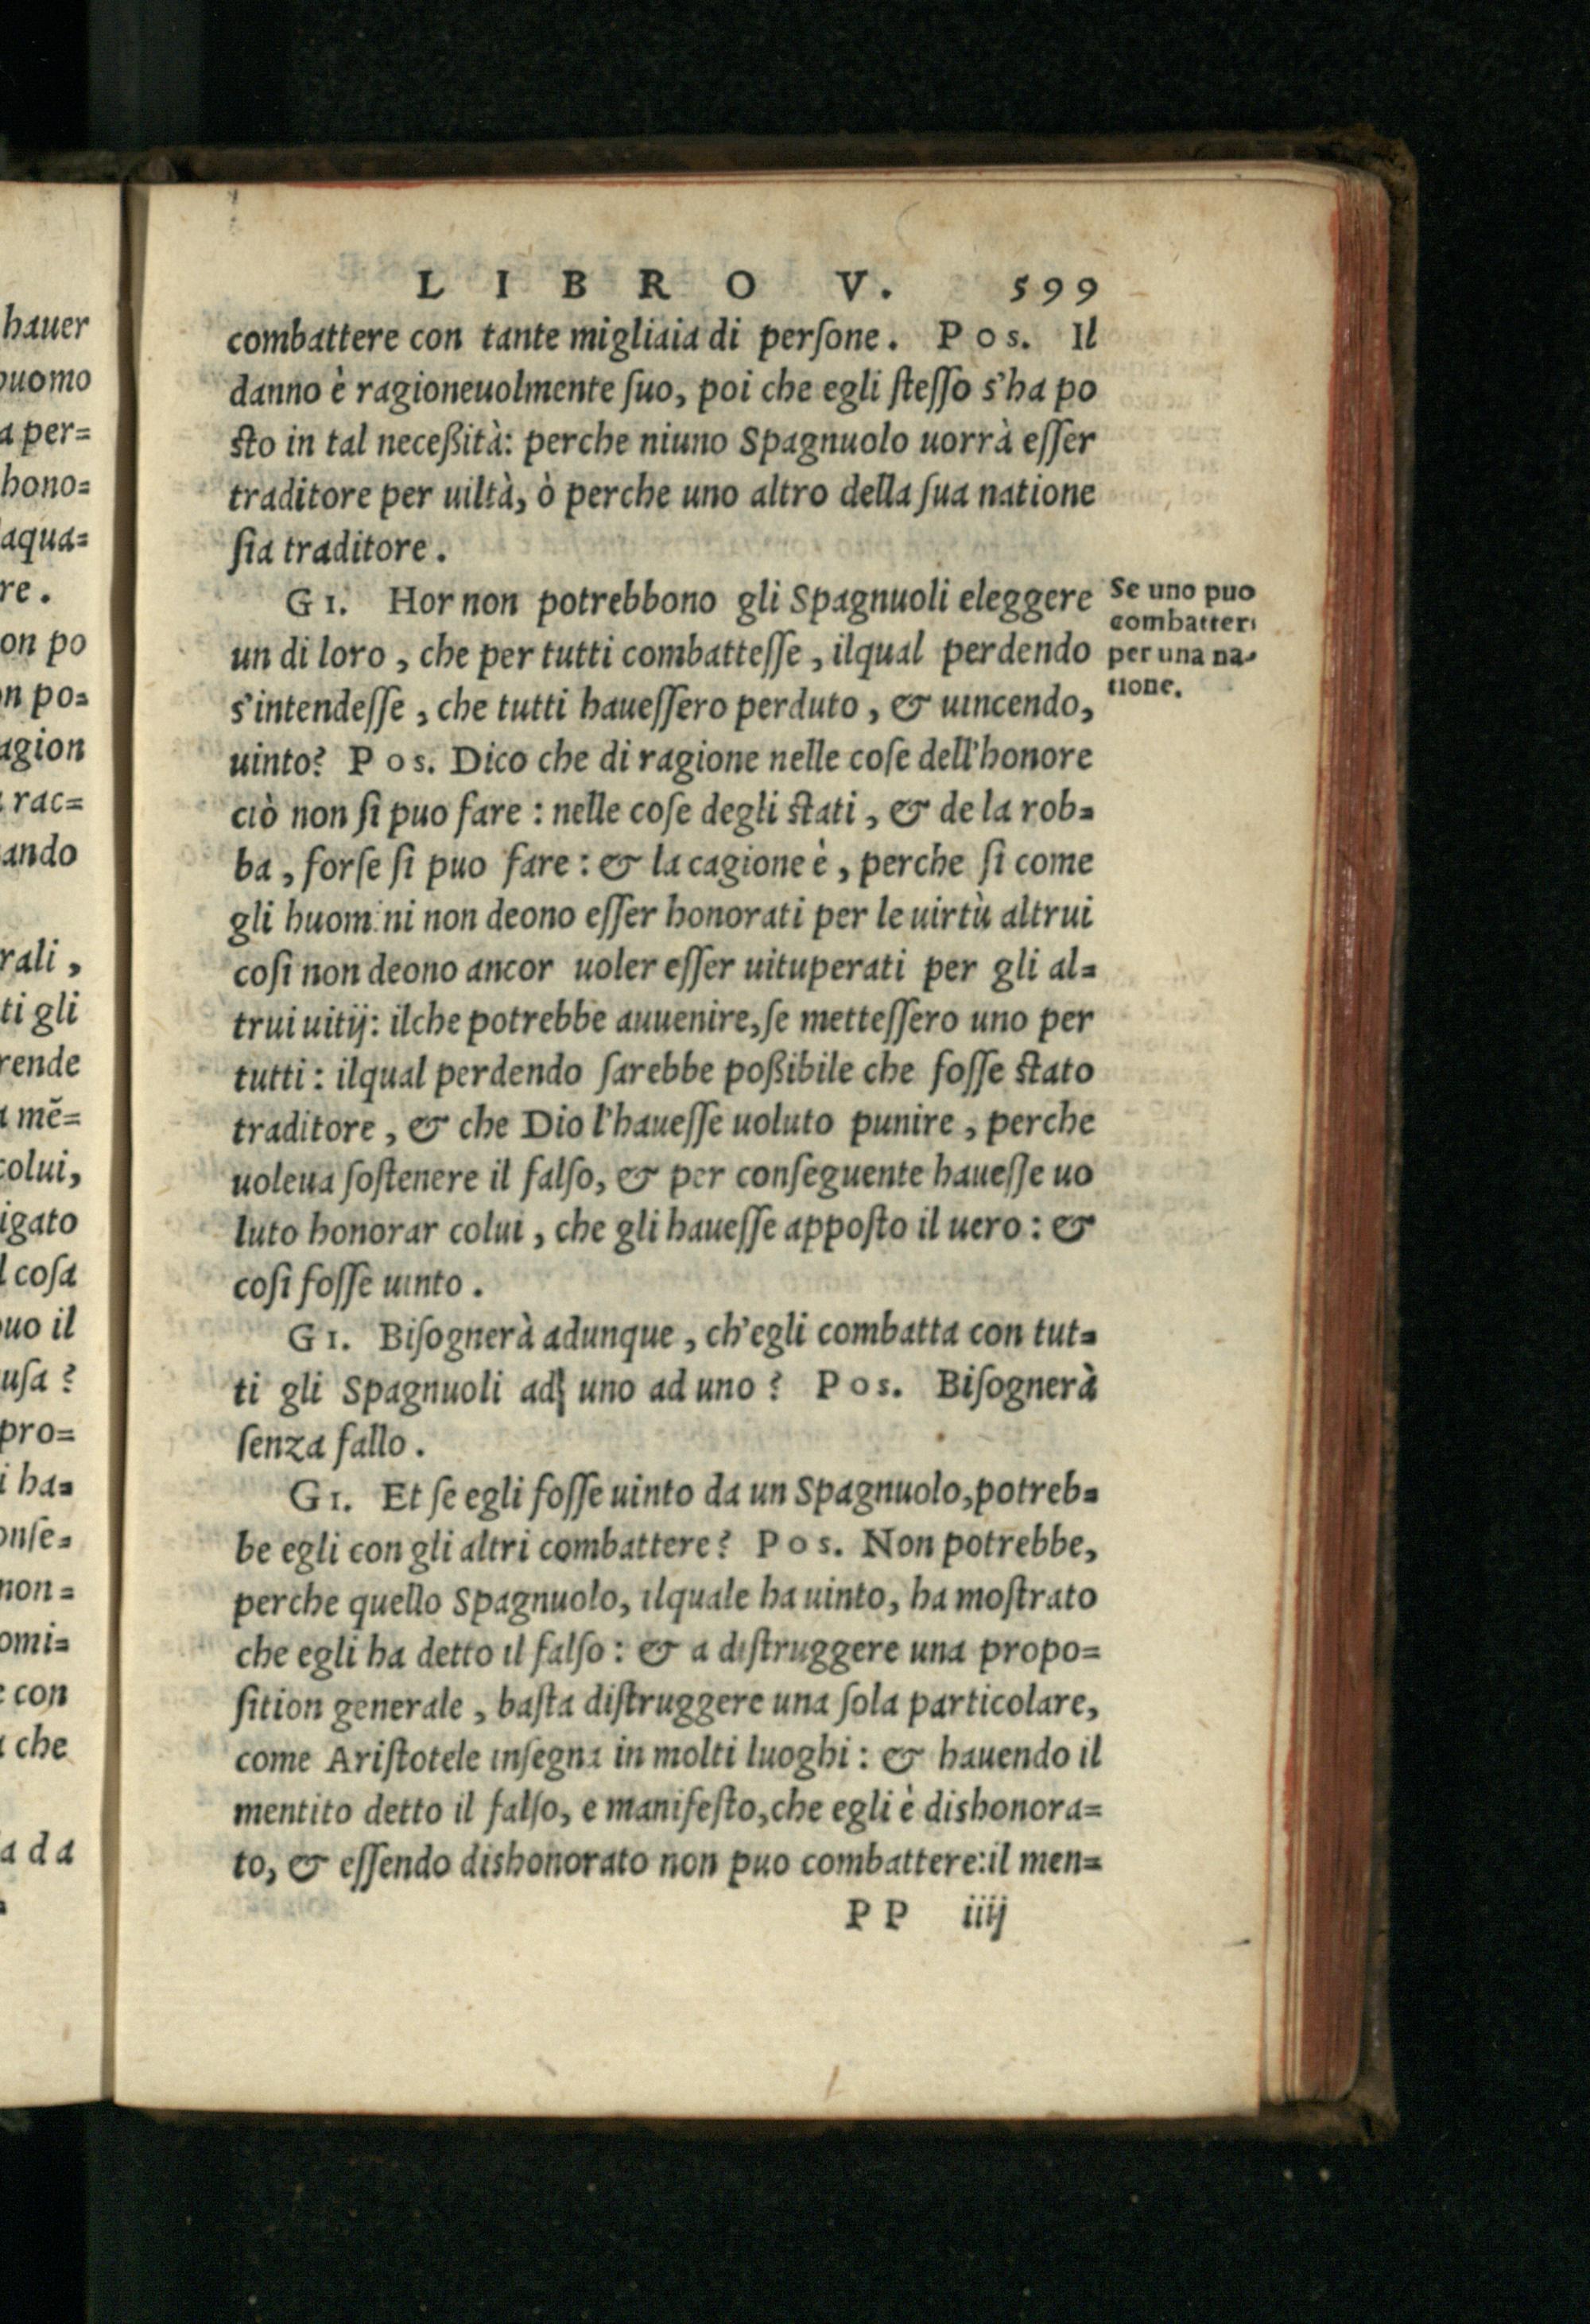 hauer
huomo
a per=
hono=
aqua=
re.
on po
n po=
agion
rac=
ando
rali,
ti gli
rende
mē=
colui,
igato
cosa
uo il
uſa?
pro=
i ha=
onſe=
non=
omi=
con
che
a da
LIBRO V. 599
combattere con tante migliaia di perſone. Pos. Il
danno è ragioneuolmente ſuo, poi che egli ſteſſo s'ha po
ſto in tal neceßità: perche niuno Spagnuolo uorrà eſſer
traditore per uiltà, ò perche uno altro della ſua natione
ſia traditore.
GI. Hor non potrebbono gli Spagnuoli eleggere
un di loro, che per tutti combatteſſe, ilqual perdendo
s'intendeſſe, che tutti haueſſero perduto, & uincendo,
uinto? Pos. Dico che di ragione nelle coſe dell'honore
ciò non ſi puo fare: nelle coſe degli ſtati, & de la rob=
ba, forſe ſi puo fare: & la cagione è, perche ſi come
gli huomini non deono eſſer honorati per le uirtù altrui
coſi non deono ancor uoler eſſer uituperati per gli al=
trui uitij: ilche potrebbe auuenire, ſe metteſſero uno per
tutti: ilqual perdendo ſarebbe poßibile che foſſe ſtato
traditore, & che Dio l'haueſſe uoluto punire, perche
uoleua ſoſtenere il falſo, & per conſeguente haueſſe uo
luto honorar colui, che gli haueſſe appoſto il uero: &
coſi foſſe uinto.
GI. Biſognerà adunque, ch'egli combatta con tut=
ti gli Spagnuoli ad uno ad uno? Pos. Biſognerà
ſenza fallo.
GI. Et ſe egli foſſe uinto da un Spagnuolo, potreb=
be egli con gli altri combattere? Pos. Non potrebbe,
perche quello Spagnuolo, ilquale ha uinto, ha moſtrato
che egli ha detto il falſo: & a diſtruggere una propo=
ſition generale, baſta diſtruggere una ſola particolare,
come Ariſtotele inſegna in molti luoghi: & hauendo il
mentito detto il falſo, e manifeſto, che egli è dishonora=
to, & eſſendo dishonorato non puo combattere: il men=
PP iiij
Se uno puo
combatter
per una na-
tione.